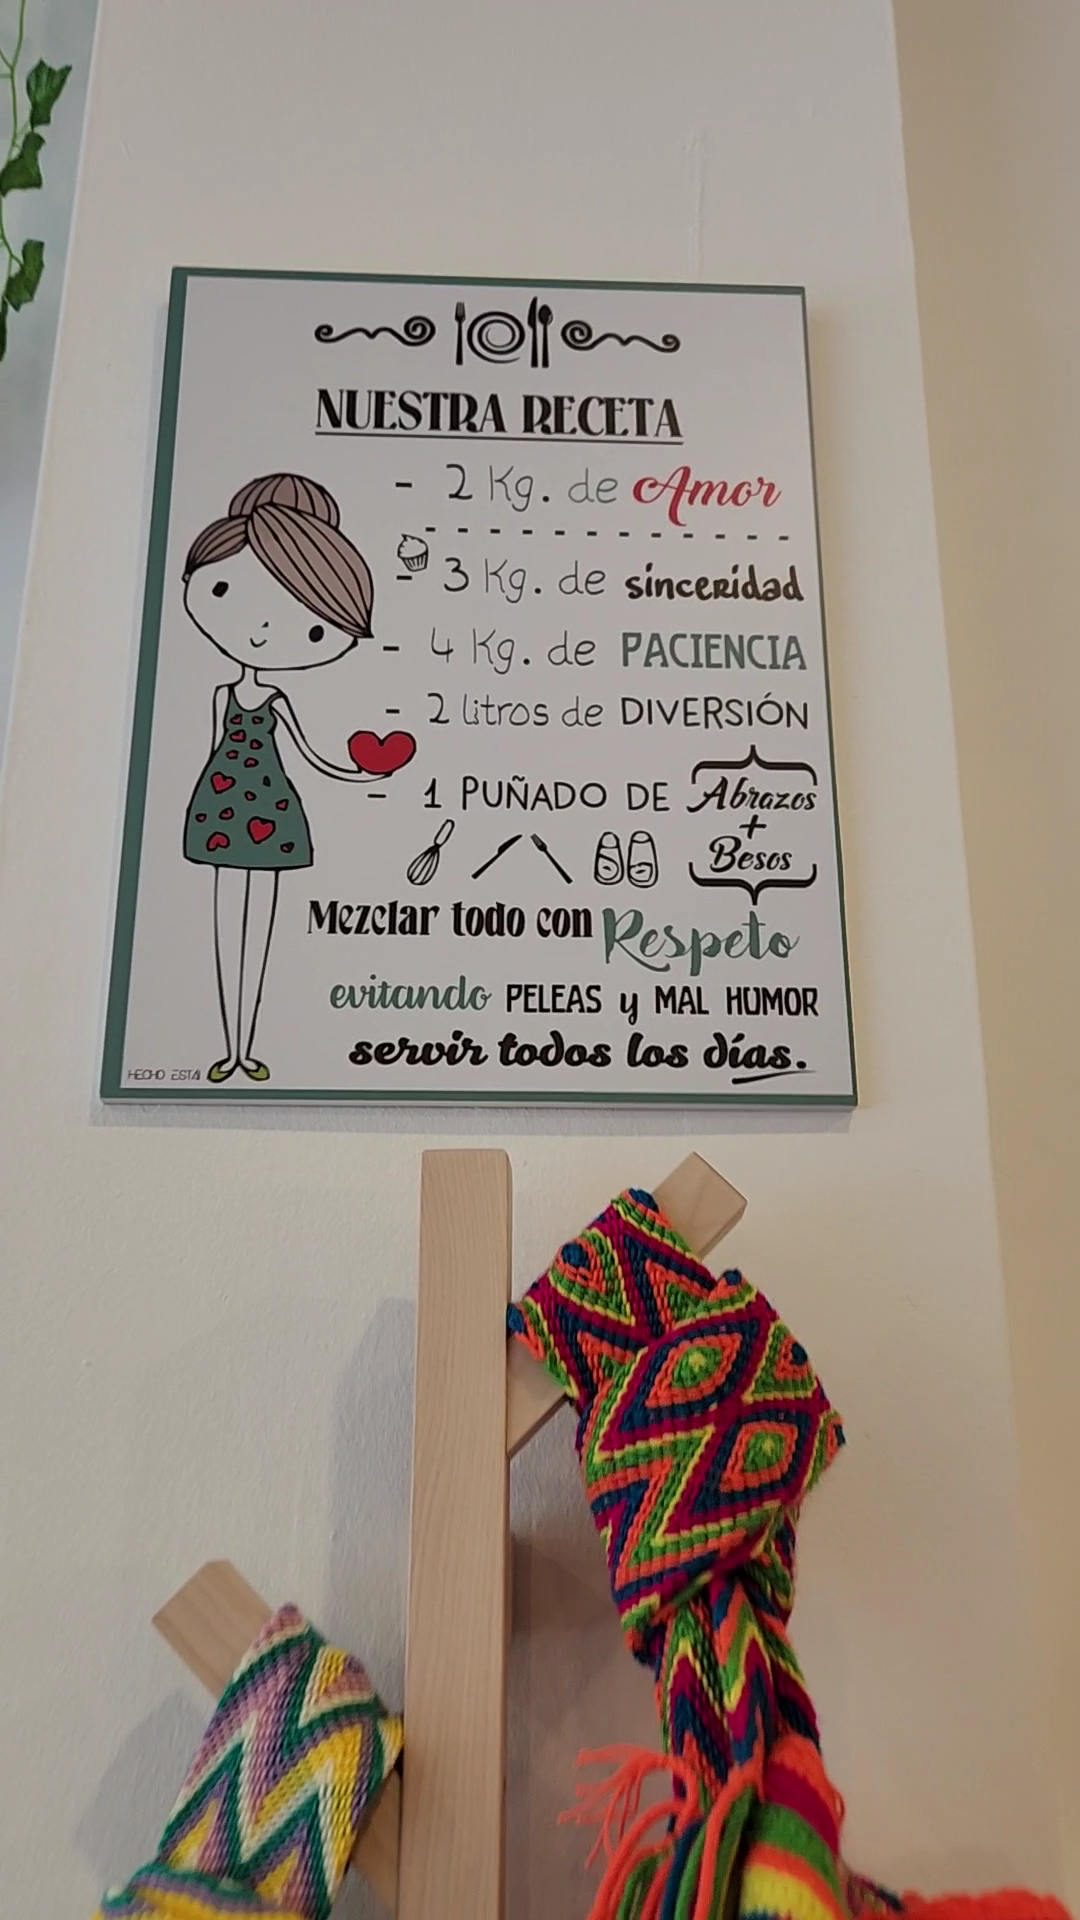 NUESTRA RECETA
- 2 Kg. de Amor
- 3 Kg. de sinceridad
- 4 Kg. de PACIENCIA
- 2 litros de DIVERSIÓN
- 1 PUÑADO DE Abrazos
+
Besos
Mezclar todo con Respeto
evitando PELEAS y MAL HUMOR
servir todos los días.
HECHO ESTA!